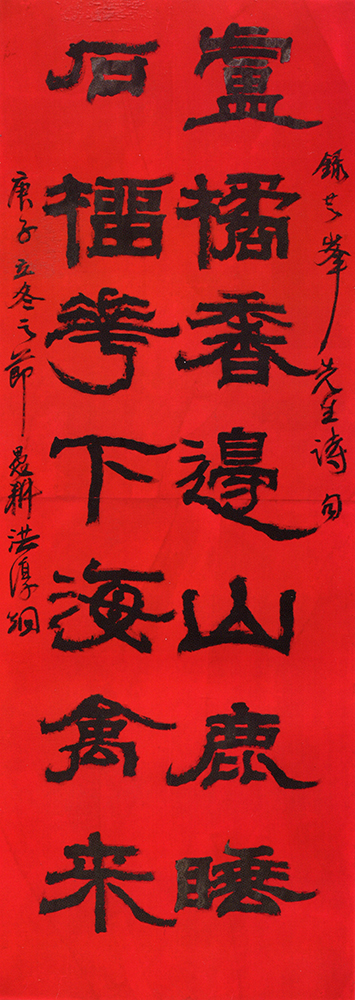 錄芝峯先生詩句
盧橘香邊山鹿睡
石橊花下海禽来
庚子立冬之節 愚耕洪淳烱